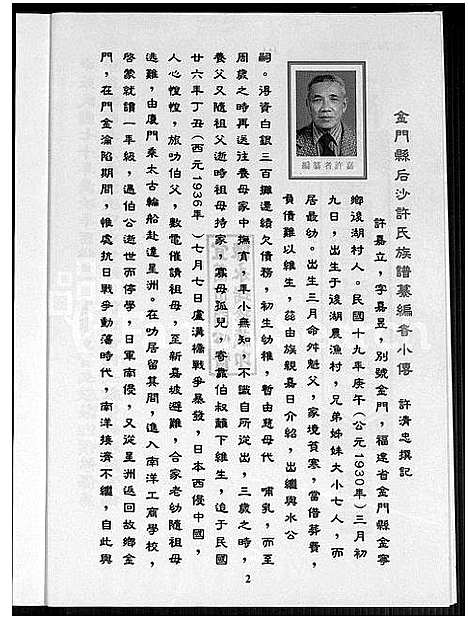 金門縣后沙許氏族譜纂編者小傳　許清忠撰記
許嘉立，字嘉昱，別號金門，福建省金門縣金寧
鄉後湖村人。民國十九年庚午（公元1930年）三月初
九日，出生于後湖農漁村，兄弟姊妹大小七人，而
居最幼。出生三月命舛魁父，家境貧寒，當借葬費，
負債難以維生，茲由族親嘉日介紹，出繼與水公
編纂者許嘉
嗣。得資白銀三百攤還績欠債務，初生幼稚，暫由慈母代　哺乳，而至
周歲之時再送往養母家中撫育，年小無知，不識自所從出，三歲之時，
養父又隨祖父逝時祖母持家，寡母孤兒寄靠伯叔籬下維生，迨于民國
廿六年丁丑（西元1936年）七月七日盧溝橋戰爭暴發，日本西侵中國，
人心惶惶，旅叻伯父，數電催請祖母，至新嘉坡避難，合家老幼隨祖母
逃難，由廈門乘太古輪船赴達星洲。在叻居留其間，進入南洋工商學校，
啓蒙就讀一年級，遇伯公逝世而停學，日軍南侵，又從星洲返回故鄉金
門，在門金淪陷期間，惟處抗日戰爭動蕩時代，南洋接濟不繼，自此與
2